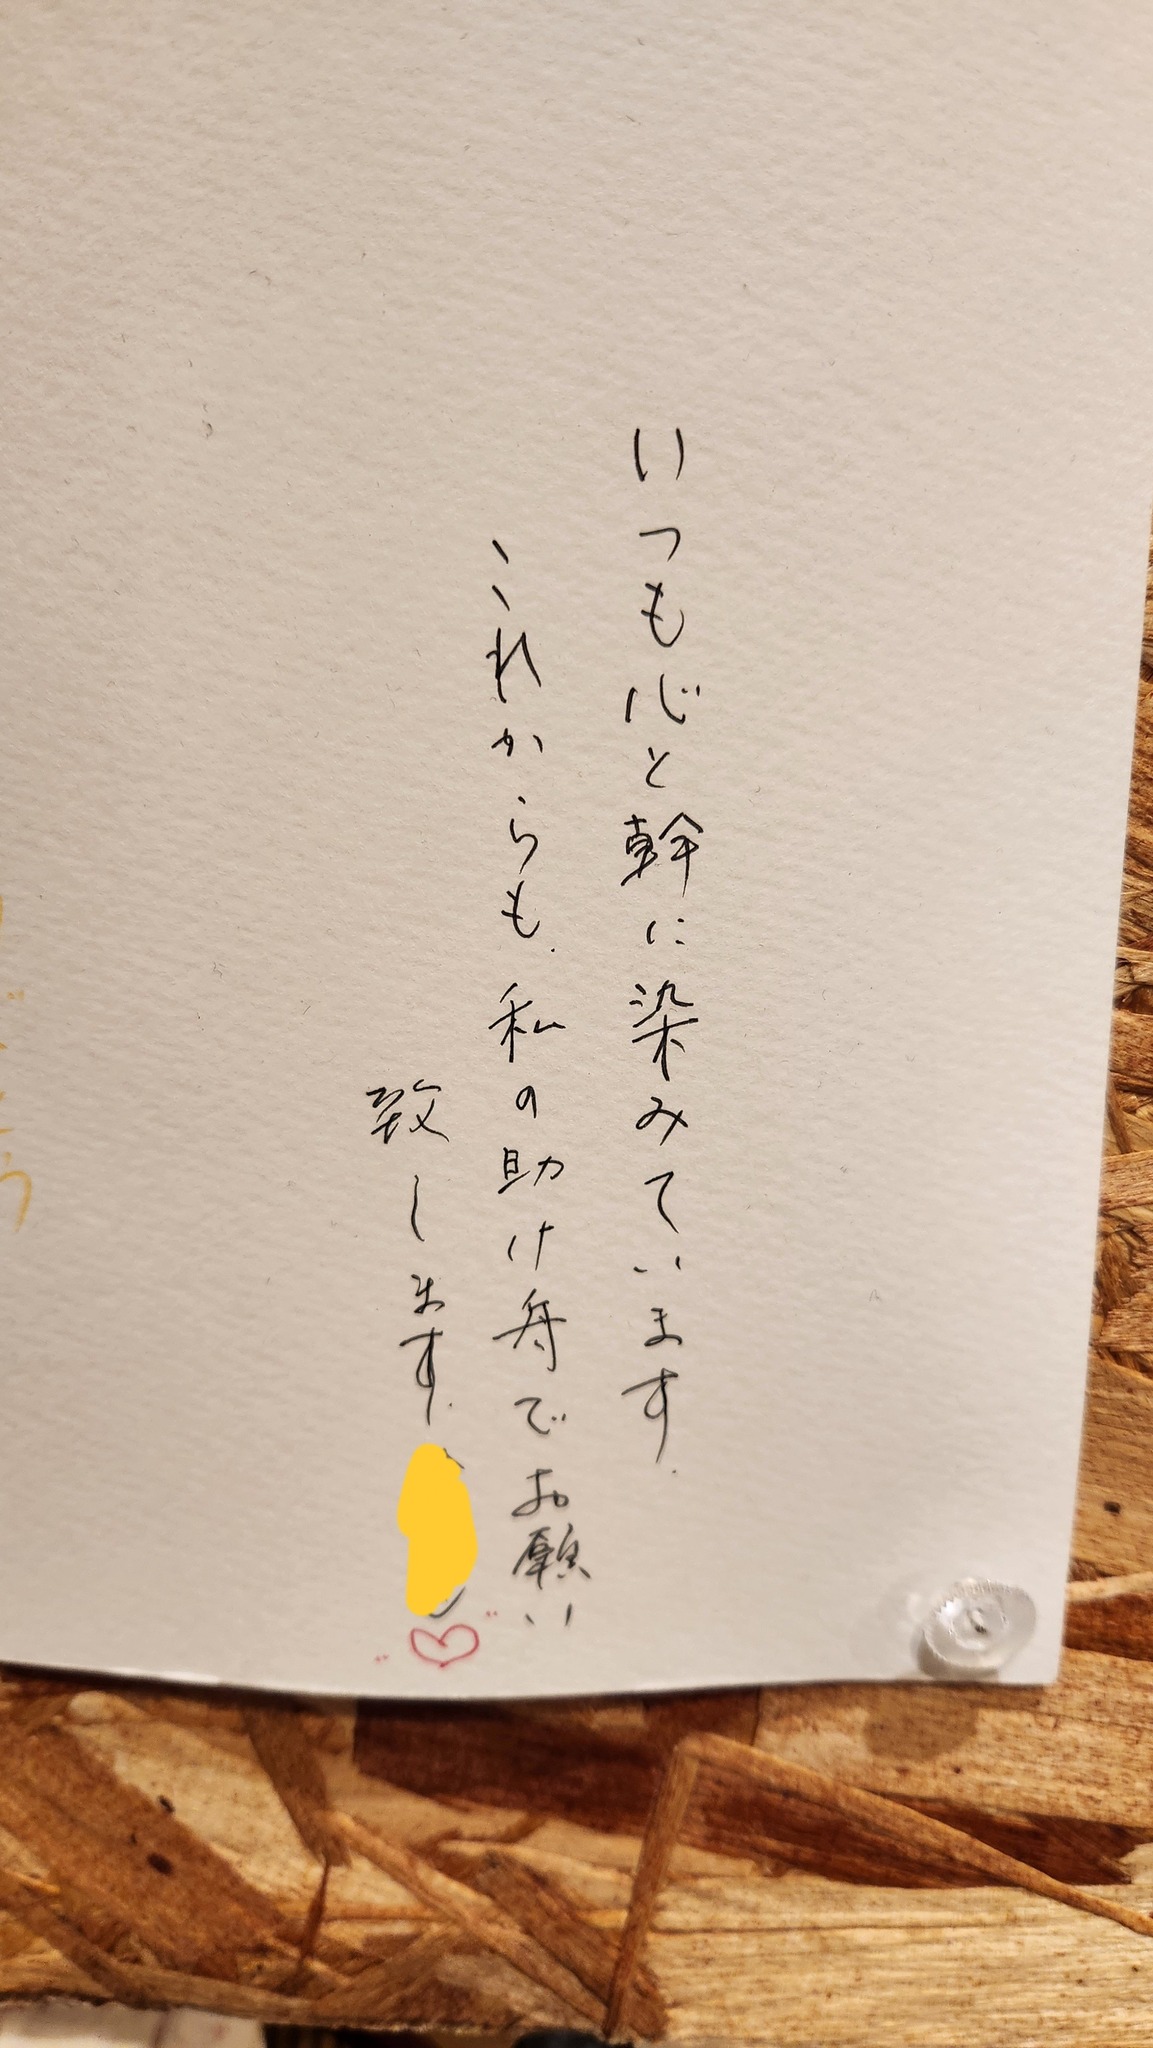 いつも心と幹に染みています.
これからも.私の助け舟でお願い
致します.